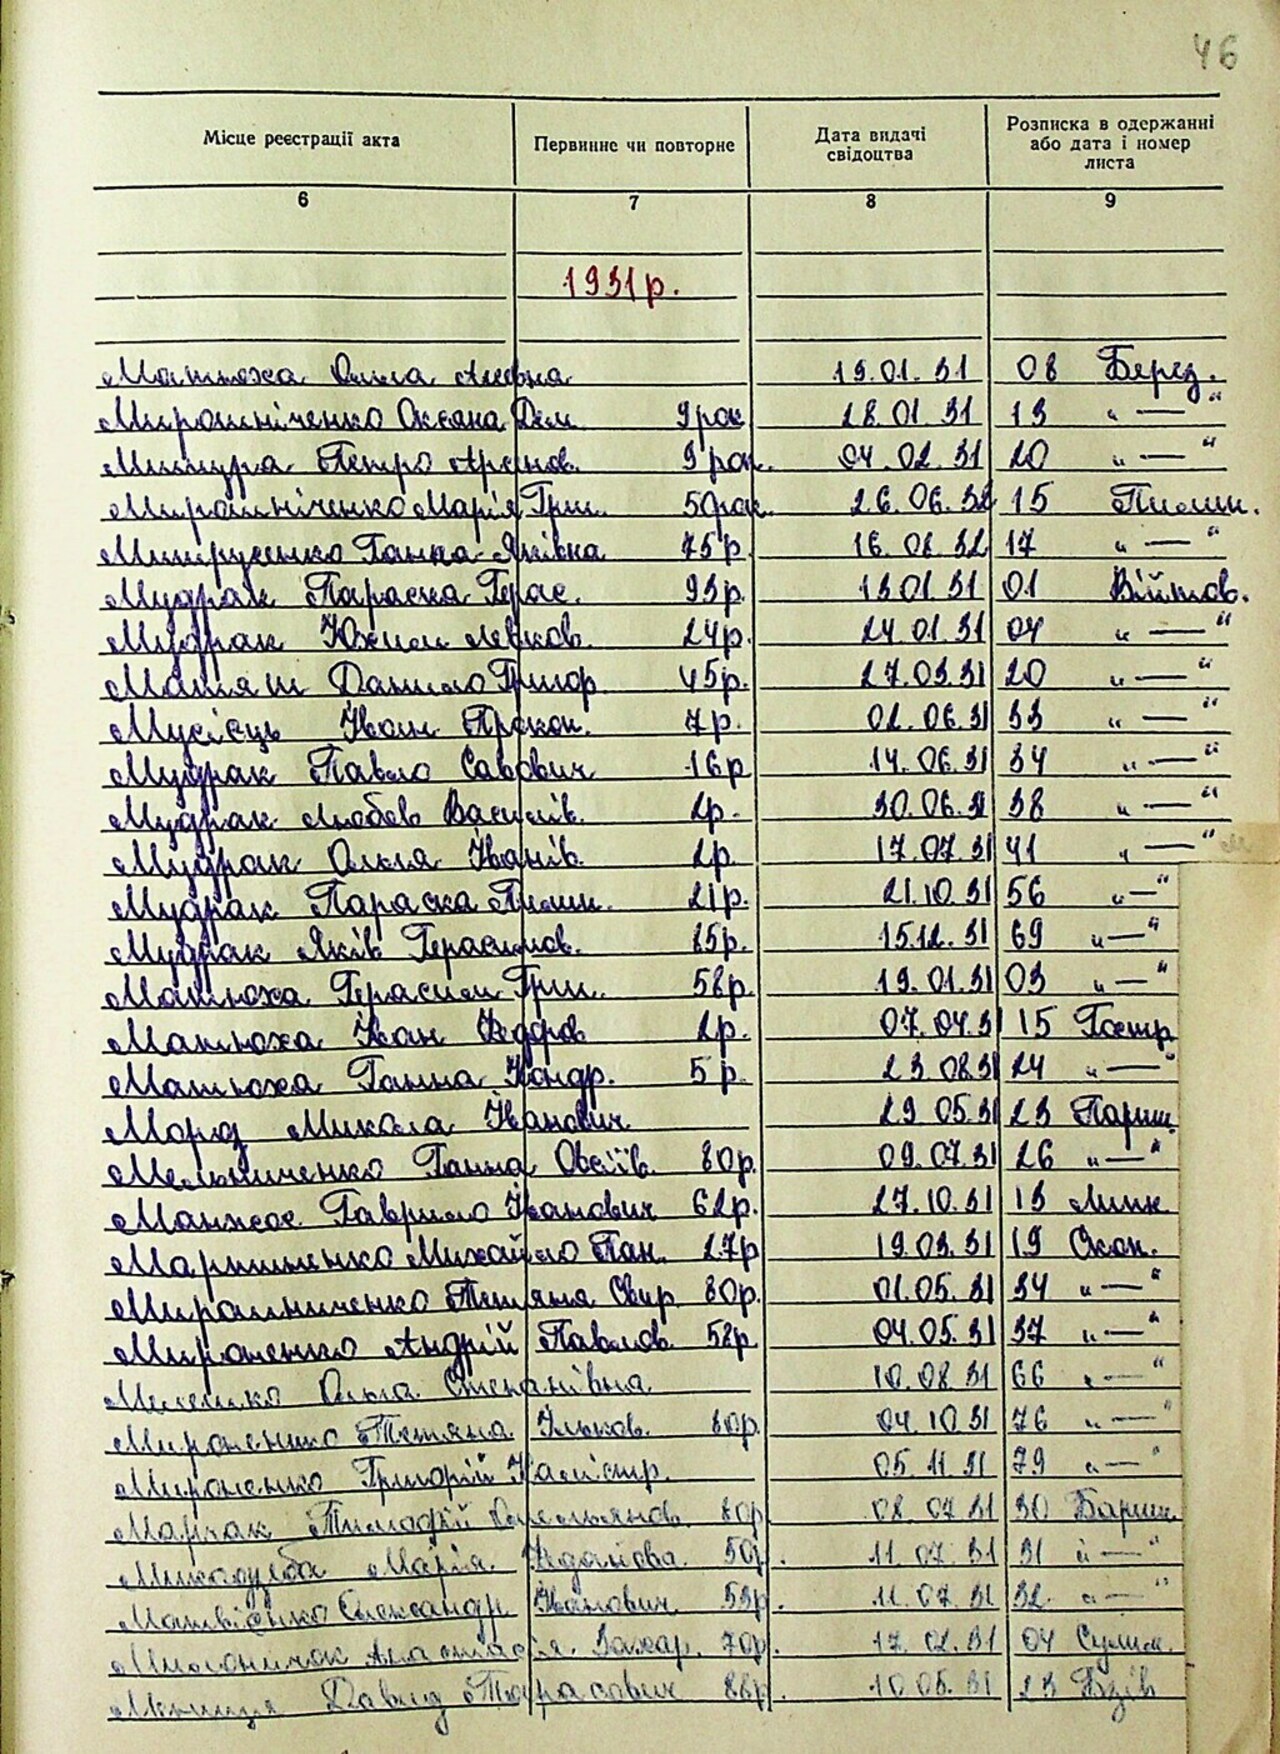 46
Місце реєстрації акта Первинне чи повторне Дата видачі свідоцтва Розписка в одержанні або дата і номер листа
6 7 8 9
1931р.
Матюха Олив Ал 19.01.31 08 Берез.
Мирошніченко Оксана Дем. 9рок 28.01.31 13 "—"
Петро Арсенов. 9 рок. 04.02.31 20 "—"
Мирошніченко Марія Григ. 50рок. 26.06.31 15 Пилип.
Ганна Яківна 75р. 16.08.31 17 "—"
Мудрак Параска Герас. 93р. 13.01.31 01 Війтов.
Мудрак Юхим Левков. 24р. 24.01.31 04 "—"
Матяш Данило Григор. 45р. 27.03.31 20 "—"
Мусієць Іван Прокоп. 7р. 02.06.31 33 "—"
Мудрак Павло Савович 16р 14.06.31 34 "—"
Мудрак Любов Василів. 2р. 30.06.31 38 "—"
Мудрак Ольга Іванів. 2р. 17.07.31 41 "—"
Мудрак Параска Пилип. 21р. 21.10.31 56 "—"
Мудрак Яків Герасимов. 85р. 15.12.31 69 "—"
Матюха Герасим Григ. 58р. 19.01.31 03 "—"
Матюха Іван Федоров 2р. 07.04.31 15 Гостр.
Матюха Ганна Кондр. 5р. 23.08.31 24 "—"
Мороз Микола Іванович 29.05.31 23 Париш.
Мельниченко Ганна Овсіїв. 80р. 09.07.31 26 "—"
Манжос Гаврило Іванович 62р. 27.10.31 13 Лип.
Мартиненко Михайло Пан. 27р 19.03.31 19 Скоп.
Мирошниченко Тетяна Свир. 80р. 01.05.31 34 "—"
Мироненко Андрій Павлов. 58р. 04.05.31 37 "—"
Мелешко Ольга Степанівна 10.08.31 66 "—"
Мироненко Тетяна Ільков. 80р. 04.10.31 76 "—"
Мироненко Григорій Калістр. 05.11.31 79 "—"
Марчак Тимофій Омельянов. 80р. 08.07.31 30 Бариш.
Марія 50р. 11.07.31 31 "—"
Матвієнко Олександр Іванович 53р. 11.07.31 32 "—"
Анастасія Захар. 70р. 17.02.31 04 Сулим.
Давид Тарасович 88р. 10.05.31 23 Бзів